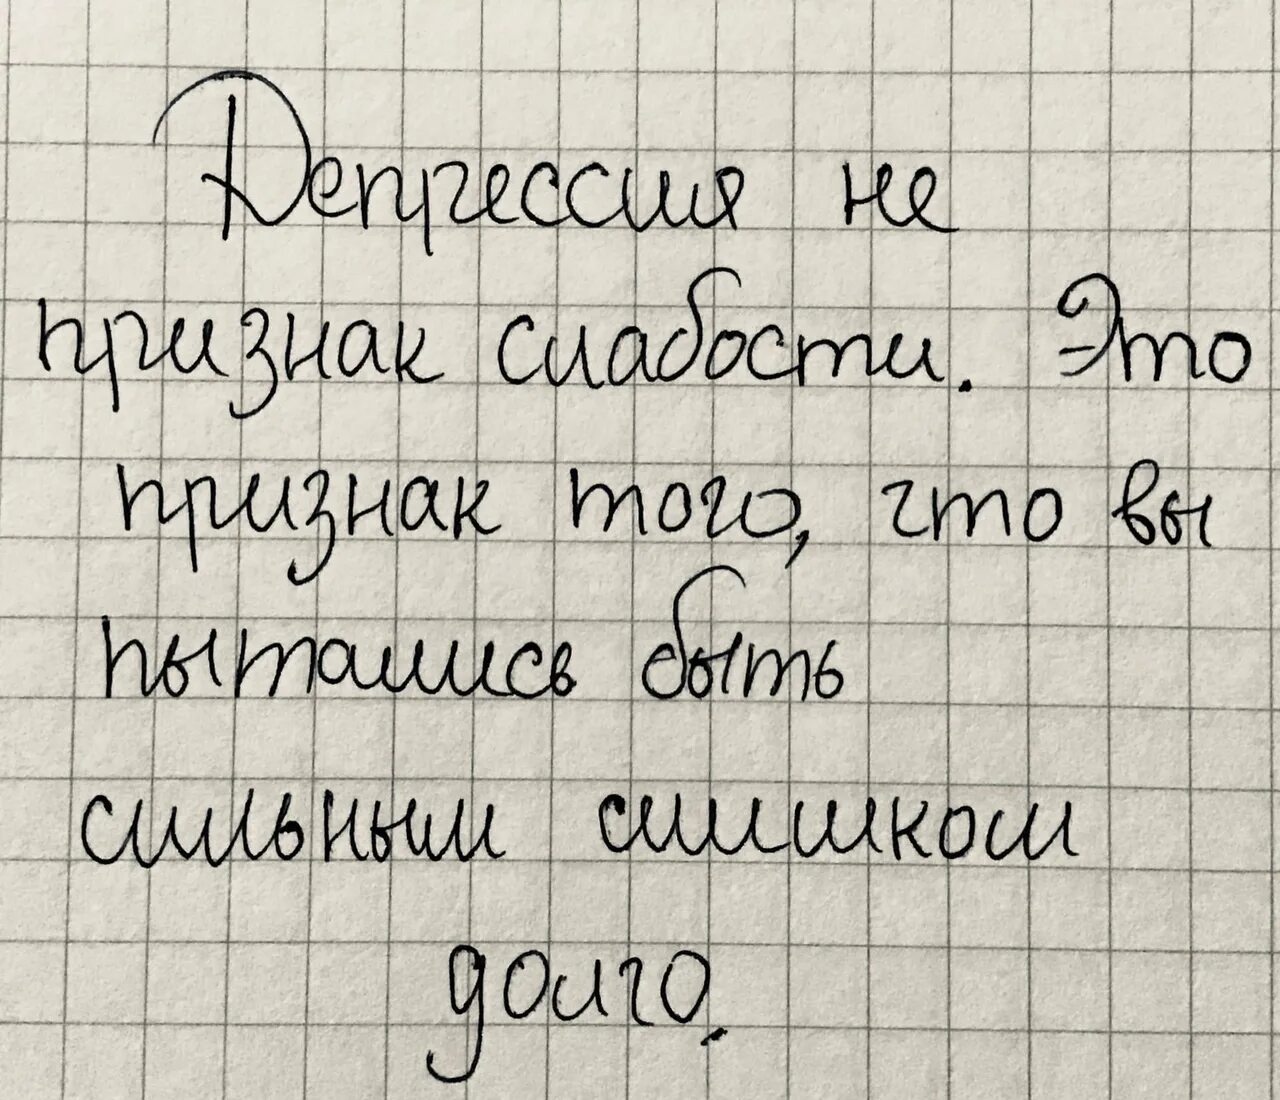 Депрессия не
признак слабости. Это
признак того, что вы
пытались быть
сильным слишком
долго.